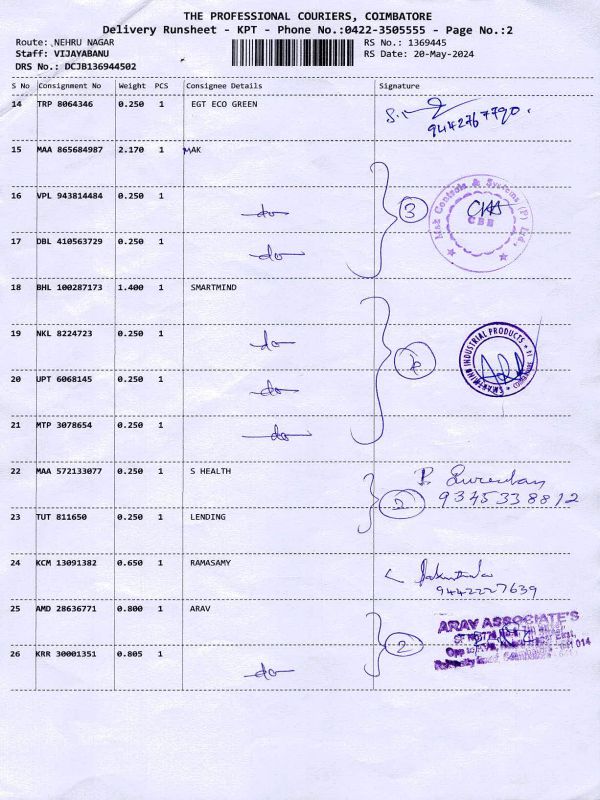 THE PROFESSIONAL COURIERS, COIMBATORE
Delivery Runsheet - KPT - Phone No.:0422-3505555 - Page No.:2
Route: NEHRU NAGAR RS No.: 1369445
Staff: VIJAYABANU RS Date: 20-May-2024
DRS No.: DCJB136944502
S No Consignment No Weight PCS Consignee Details Signature
14 TRP 8064346 0.250 1 EGT ECO GREEN
9442767790.
15 MAA 865684987 2.170 1 MAK
16 VPL 943814484 0.250 1 do 3 Mak Controls & Systems (P) Ltd., CBE
17 DBL 410563729 0.250 1 do
18 BHL 100287173 1.400 1 SMARTMIND
19 NKL 8224723 0.250 1 do INDUSTRIAL PRODUCTS
20 UPT 6068145 0.250 1 do
21 MTP 3078654 0.250 1 do
22 MAA 572133077 0.250 1 S HEALTH
2 9345338812
23 TUT 811650 0.250 1 LENDING
24 KCM 13091382 0.650 1 RAMASAMY
9442227639
25 AMD 28636771 0.800 1 ARAV
2 ARAV ASSOCIATE'S
26 KRR 30001351 0.805 1 do